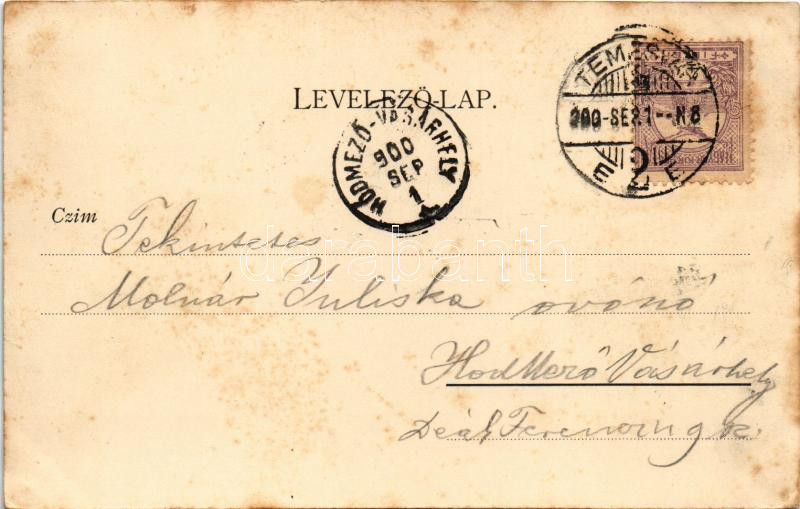 LEVELEZŐ-LAP.
TEMESVÁR
900-SEP.1--N8
HÓDMEZŐ-VÁSÁRHELY
900
SEP
1
Czim
Tekintetes
darabanth
Molnár Juliska óvónő
HodMező Vásárhely
Deák Ferencz